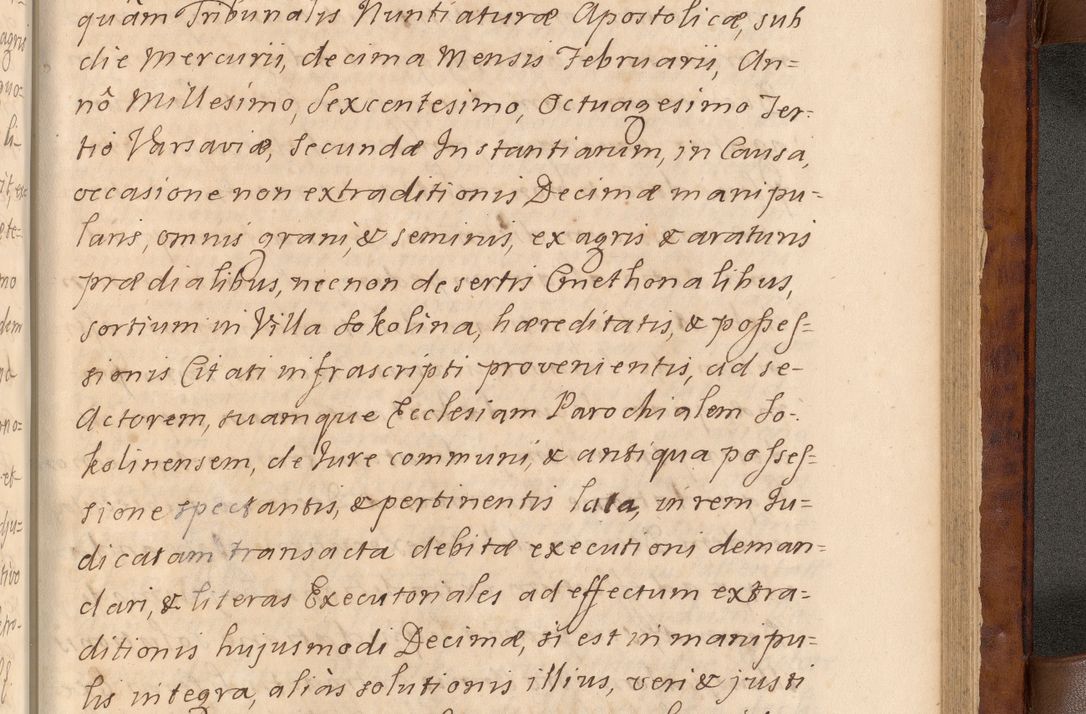 quàm Tribunalis Nuntiaturæ Apostolicæ, sub
die Mercurii, decima Mensis Februarii, An=
nô Millesimo, Sexcentesimo, Octuagesimo Ter-
tio Varsaviæ, Secundæ Instantiarum, in Causa,
occasione non extraditionis Decimæ manipu=
laris, omnis grani, & seminis, ex agris & araturis
prædialibus, necnon desertis Cmethonalibus,
sortium in Villa Sokolina, hæreditatis, & posses=
sionis Citati infrascripti provenientis, ad se-
Actorem, suamque Ecclesiam Parochialem So-
kolinensem, de Iure communi, & antiqua posses=
sione spectantis, & pertinentis lata, in rem Iu=
dicatam transacta debitæ executioni deman=
dari, & literas Executoriales ad effectum extra=
ditionis hujusmodi Decimæ, si est in manipu=
lis integra, aliàs solutionis illius, veri & justi